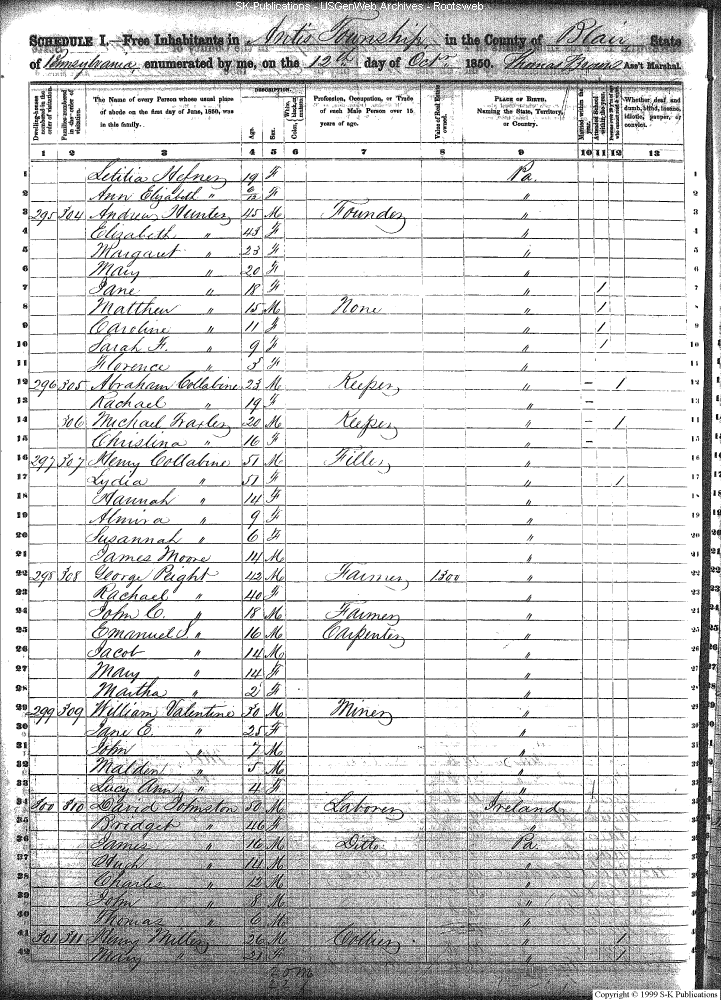 SK-Publications - USGenWeb Archives - Rootsweb
SCHEDULE I.—Free Inhabitants in Antis Township in the County of Blair State
of Pennsylvania, enumerated by me, on the 12th day of Octr 1850. Thomas Ass't Marshal.
DESCRIPTION.
Dwelling-houses numbered in the order of visitation.
Families numbered in the order of visitation.
The Name of every Person whose usual place of abode on the first day of June, 1850, was in this family.
Age.
Sex.
White, Color, black, or mulatto.
Profession, Occupation, or Trade of each Male Person over 15 years of age.
Value of Real Estate owned.
PLACE OF BIRTH. Naming the State, Territory, or Country.
Married within the year.
Attended School within the year.
Whether deaf and dumb, blind, insane, idiotic, pauper, or convict.
1 2 3 4 5 6 7 8 9 10 11 12 13
1 Letitia Hefner 19 F Pa. 1
2 Ann Elizabeth " F " 2
3 295 304 Andrew Hunter 45 M Founder " 3
4 Elizabeth " 43 F " 4
5 Margaret " 23 F " 5
6 Mary " 20 F " 6
7 Jane " 18 F " 1 7
8 Matthew " 15 M None " 1 8
9 Caroline " 11 F " 1 9
10 Sarah F. " 9 F " 1 10
11 Florence " 3 F " 11
12 296 305 Abraham Collabine 23 M Keeper " – 1 12
13 Rachael " 19 F " – 13
14 306 Michael 20 M Keeper " – 1 14
15 Christina " 16 F " – 15
16 297 307 Henry Collabine 51 M Filler " 16
17 Lydia " 51 F " 1 17
18 Hannah " 14 F " 18
19 Almira " 9 F " 19
20 Susannah " 6 F " 20
21 James Moore 14 M " 21
22 298 308 George Peight 42 M Farmer 1300 " 22
23 Rachael " 40 F " 23
24 John C. " 18 M Farmer " 24
25 Emanuel S. " 16 M Carpenter " 25
26 Jacob " 14 M " 26
27 Mary " 14 F " 27
28 Martha " 2 F " 28
29 299 309 William Valentine 30 M Miner " 29
30 Jane E. " 25 F " 30
31 John " 7 M " 31
32 Malden " 5 M " 32
33 Lucy Ann " 4 F " 33
34 300 310 David Johnston 50 M Laborer Ireland 34
35 Bridget " 46 F " 35
36 James " 16 M Ditto Pa. 36
37 Hugh " 14 M " 37
38 Charles " 12 M " 38
39 John " 8 M " 39
40 Thomas " 6 M " 40
41 301 311 Henry Miller 26 M Collier " 1 41
42 Mary " 21 F " 1 42
20 M
22 F
Copyright © 1999 S-K Publications